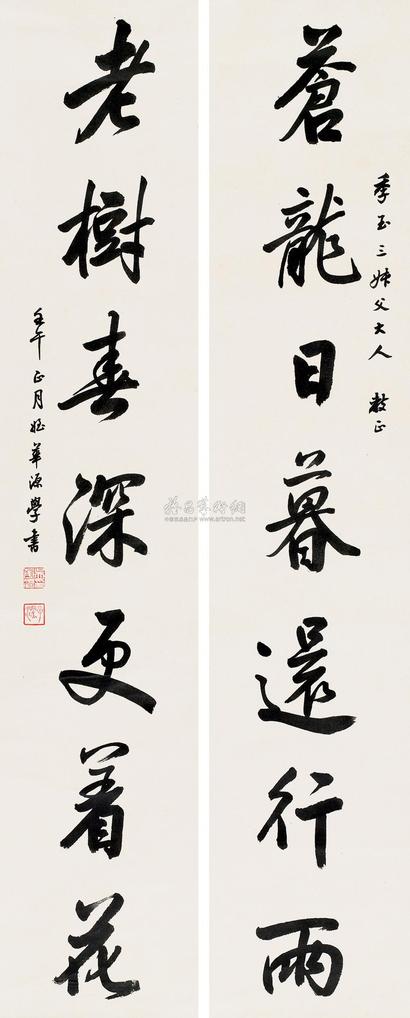 蒼龍日暮還行雨
季玉三姊父大人 教正
老樹春深更着花
壬午正月姪華源學書
雅昌藝術網
www.artron.net